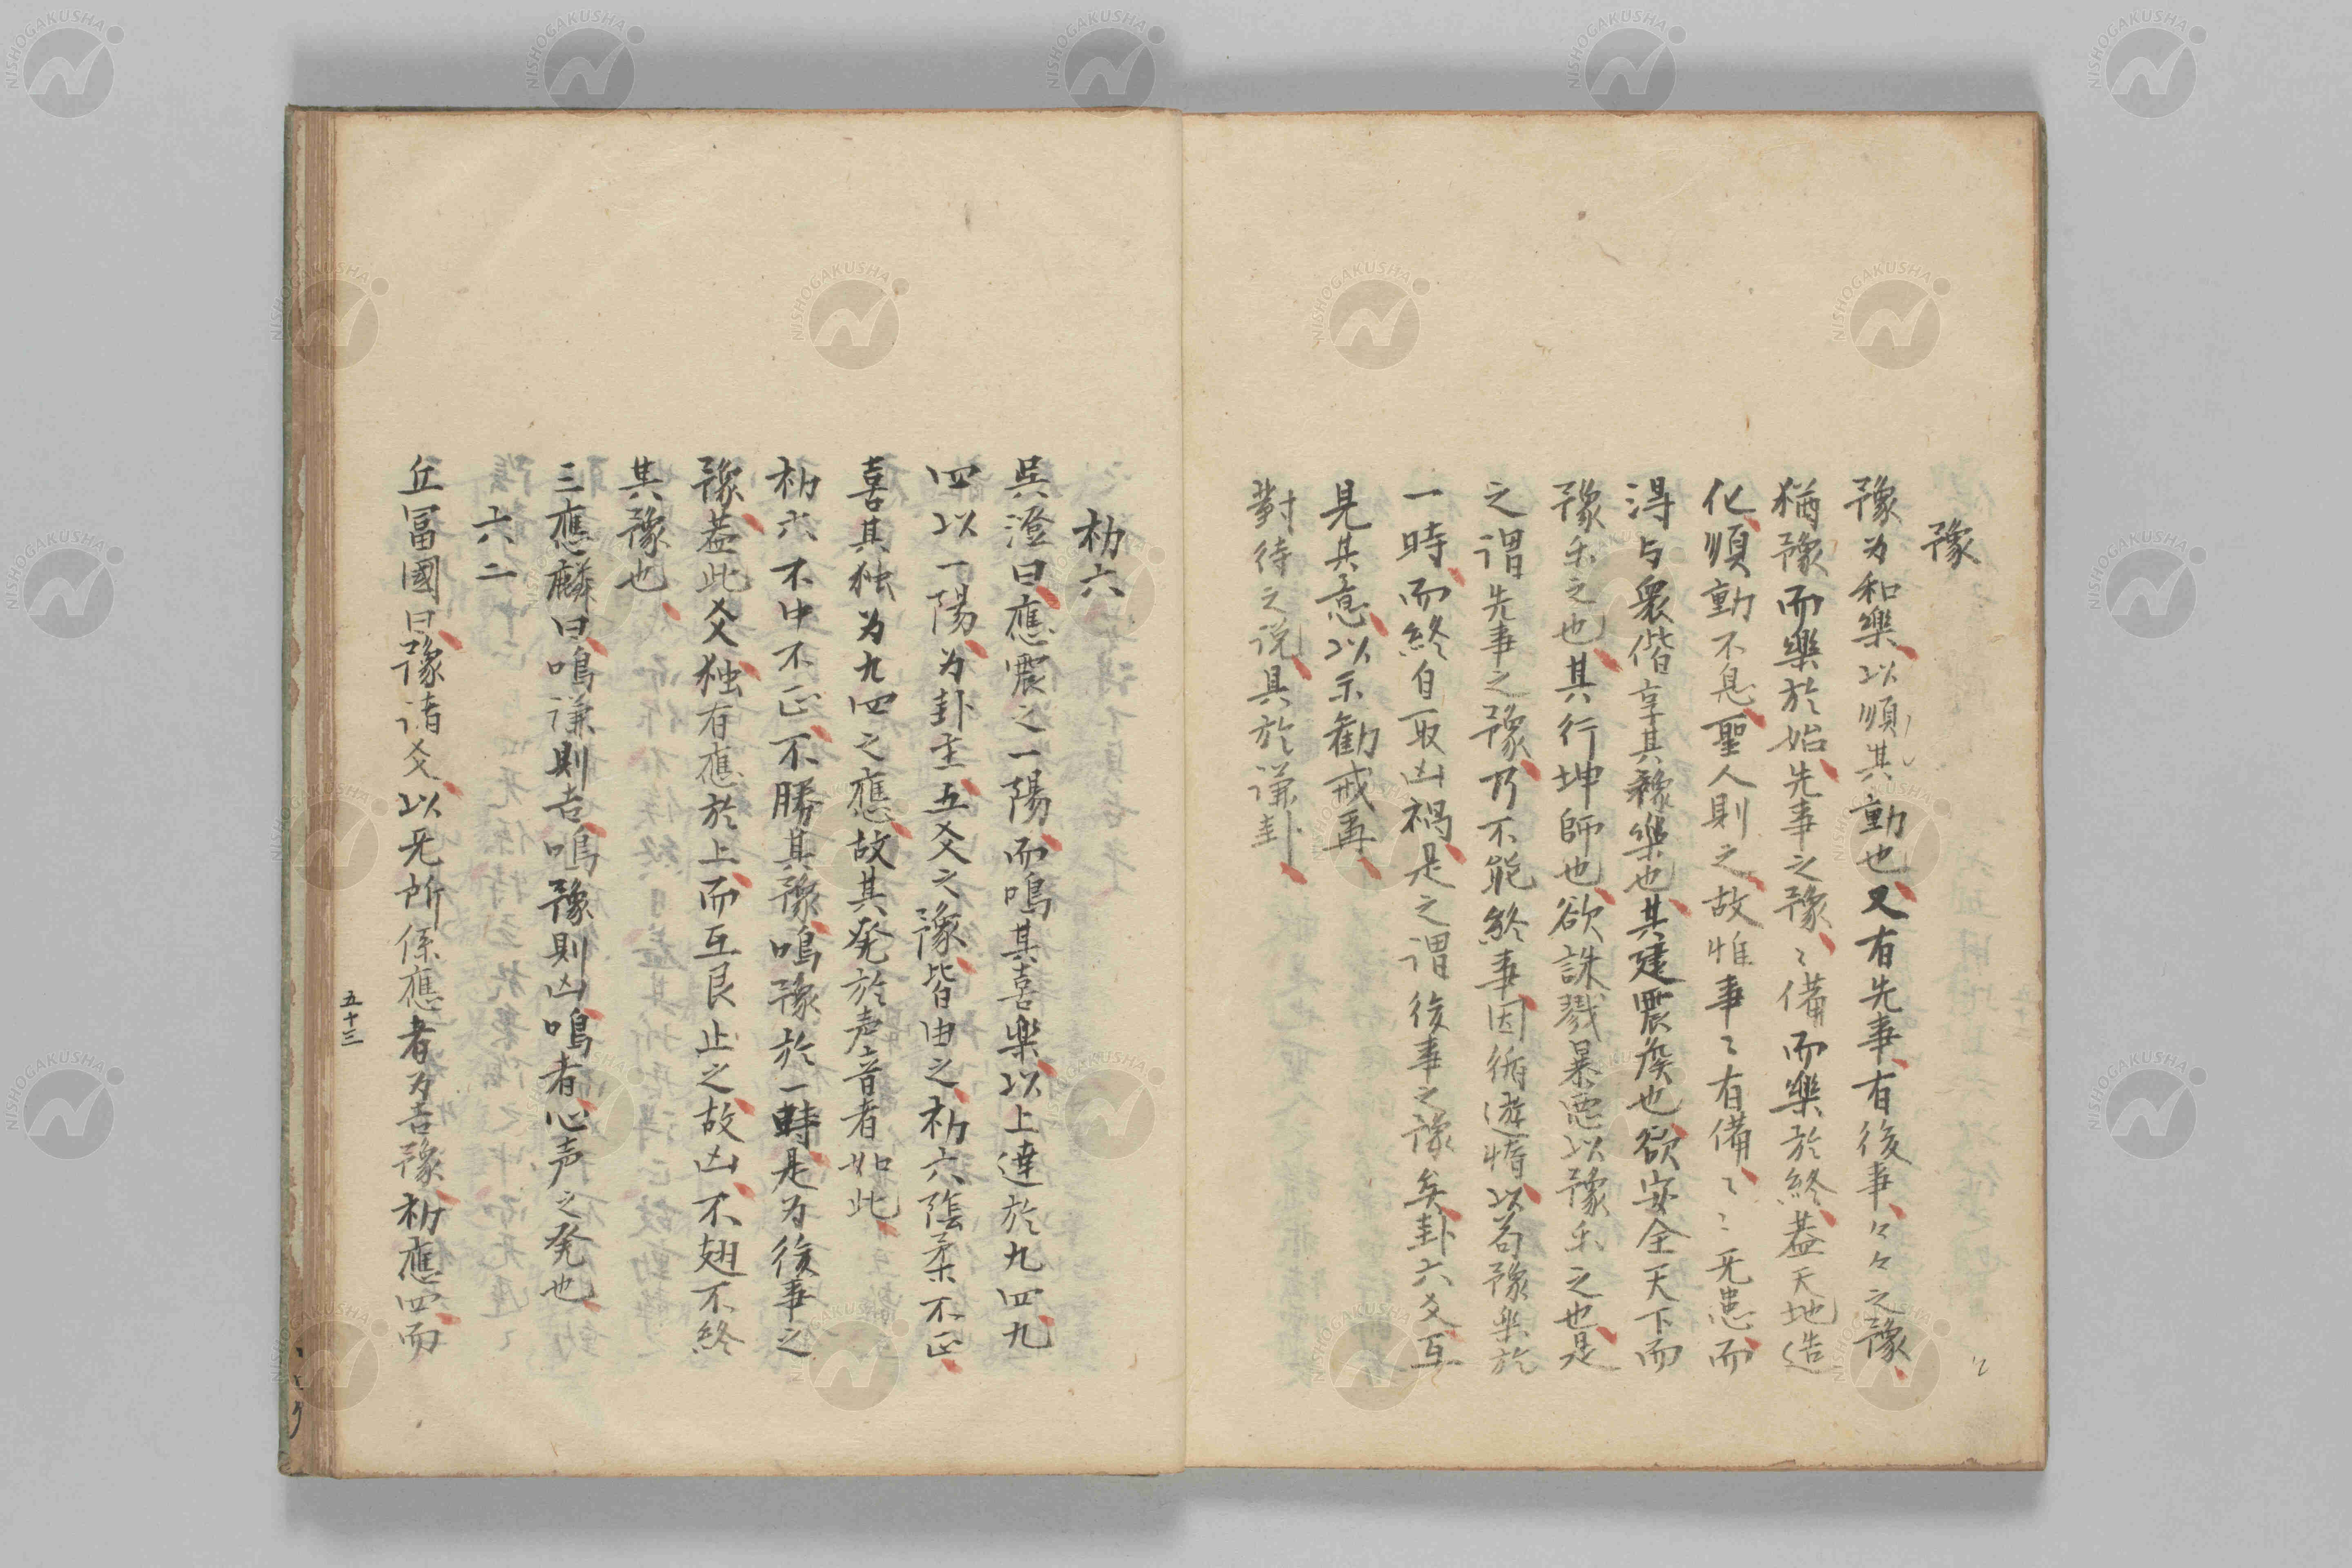 豫
豫为和樂以順其動也又有先事有後事々々之豫
猶豫而樂於始先事之豫〻備而樂於終葢天地造
化順動不息聖人則之故惟事〻有備〻〻无患而
淂与衆偕享其豫樂也其建震矦也欲安全天下而
豫乐之也其行坤師也欲誅戮暴悪以豫乐之也是
之謂先事之豫乃不能終事因循遊惰以苟豫樂於
一時而終自取凶禍是之謂後事之豫矣卦六爻互
見其意以示勸戒再
對待之说具於谦卦
初六
吳澄曰應震之一陽而鳴其喜樂以上達於九四九
四以一陽为卦主五爻之豫皆由之初六陰柔不正
喜其独为九四之應故其発於声音者如此
初六不中不正不勝其豫鳴豫於一時是为後事之
豫葢此爻独有應於上而互艮止之故凶不翅不終
其豫也
三應麟曰鳴谦則吉鳴豫則凶鳴者心声之発也
六二
丘冨國曰豫诸爻以无所係應者为吉豫初應四而
五十三
NISHOGAKUSHA